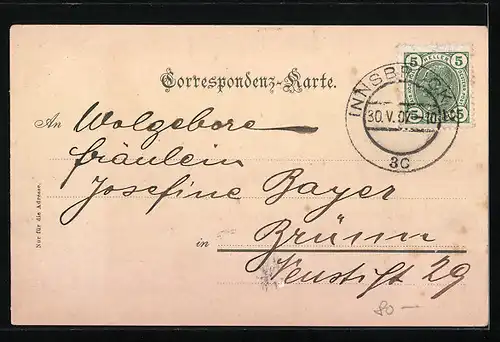 5 HELLER 5
Correspondenz-Karte.
INNSBRUCK
30.V.07
3c
5 5
An Wolgebore
fräulein
Josefine Bayer
in Brünn
Neustift 29
Nur für die Adresse.
80 —